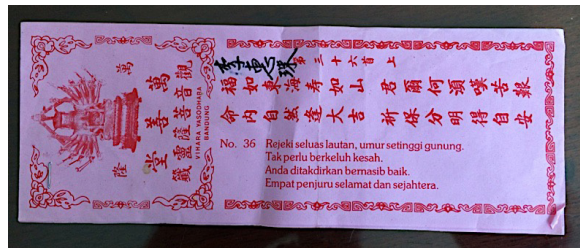 萬隆
萬善堂
觀音菩薩靈籤
VIHARA YASODHARA
BANDUNG
第三十六首 上
福如東海壽如山 君爾何須嘆苦艱
命內自然逢大吉 祈保分明得自安
No. 36 Rejeki seluas lautan, umur setinggi gunung.
Tak perlu berkeluh kesah.
Anda ditakdirkan bernasib baik.
Empat penjuru selamat dan sejahtera.